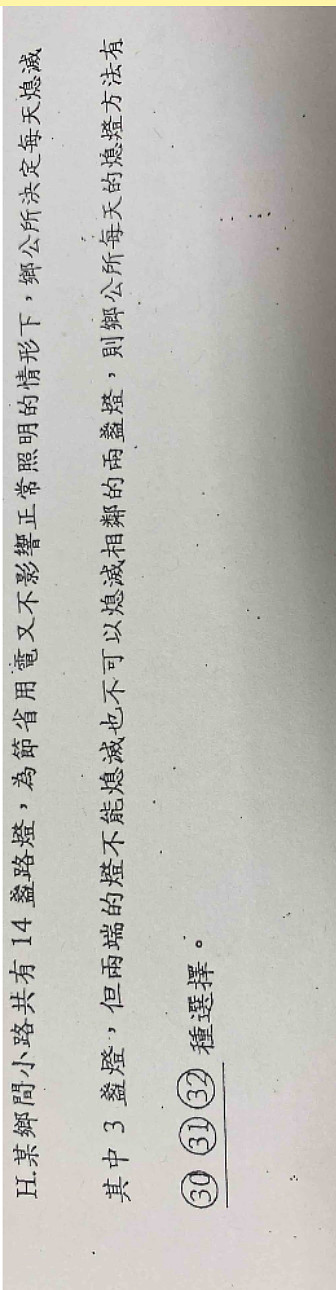 H.某鄉間小路共有 14 盞路燈，為節省用電又不影響正常照明的情形下，鄉公所決定每天熄滅
其中 3 盞燈，但兩端的燈不能熄滅也不可以熄滅相鄰的兩盞燈，則鄉公所每天的熄燈方法有
㉚㉛㉜ 種選擇。